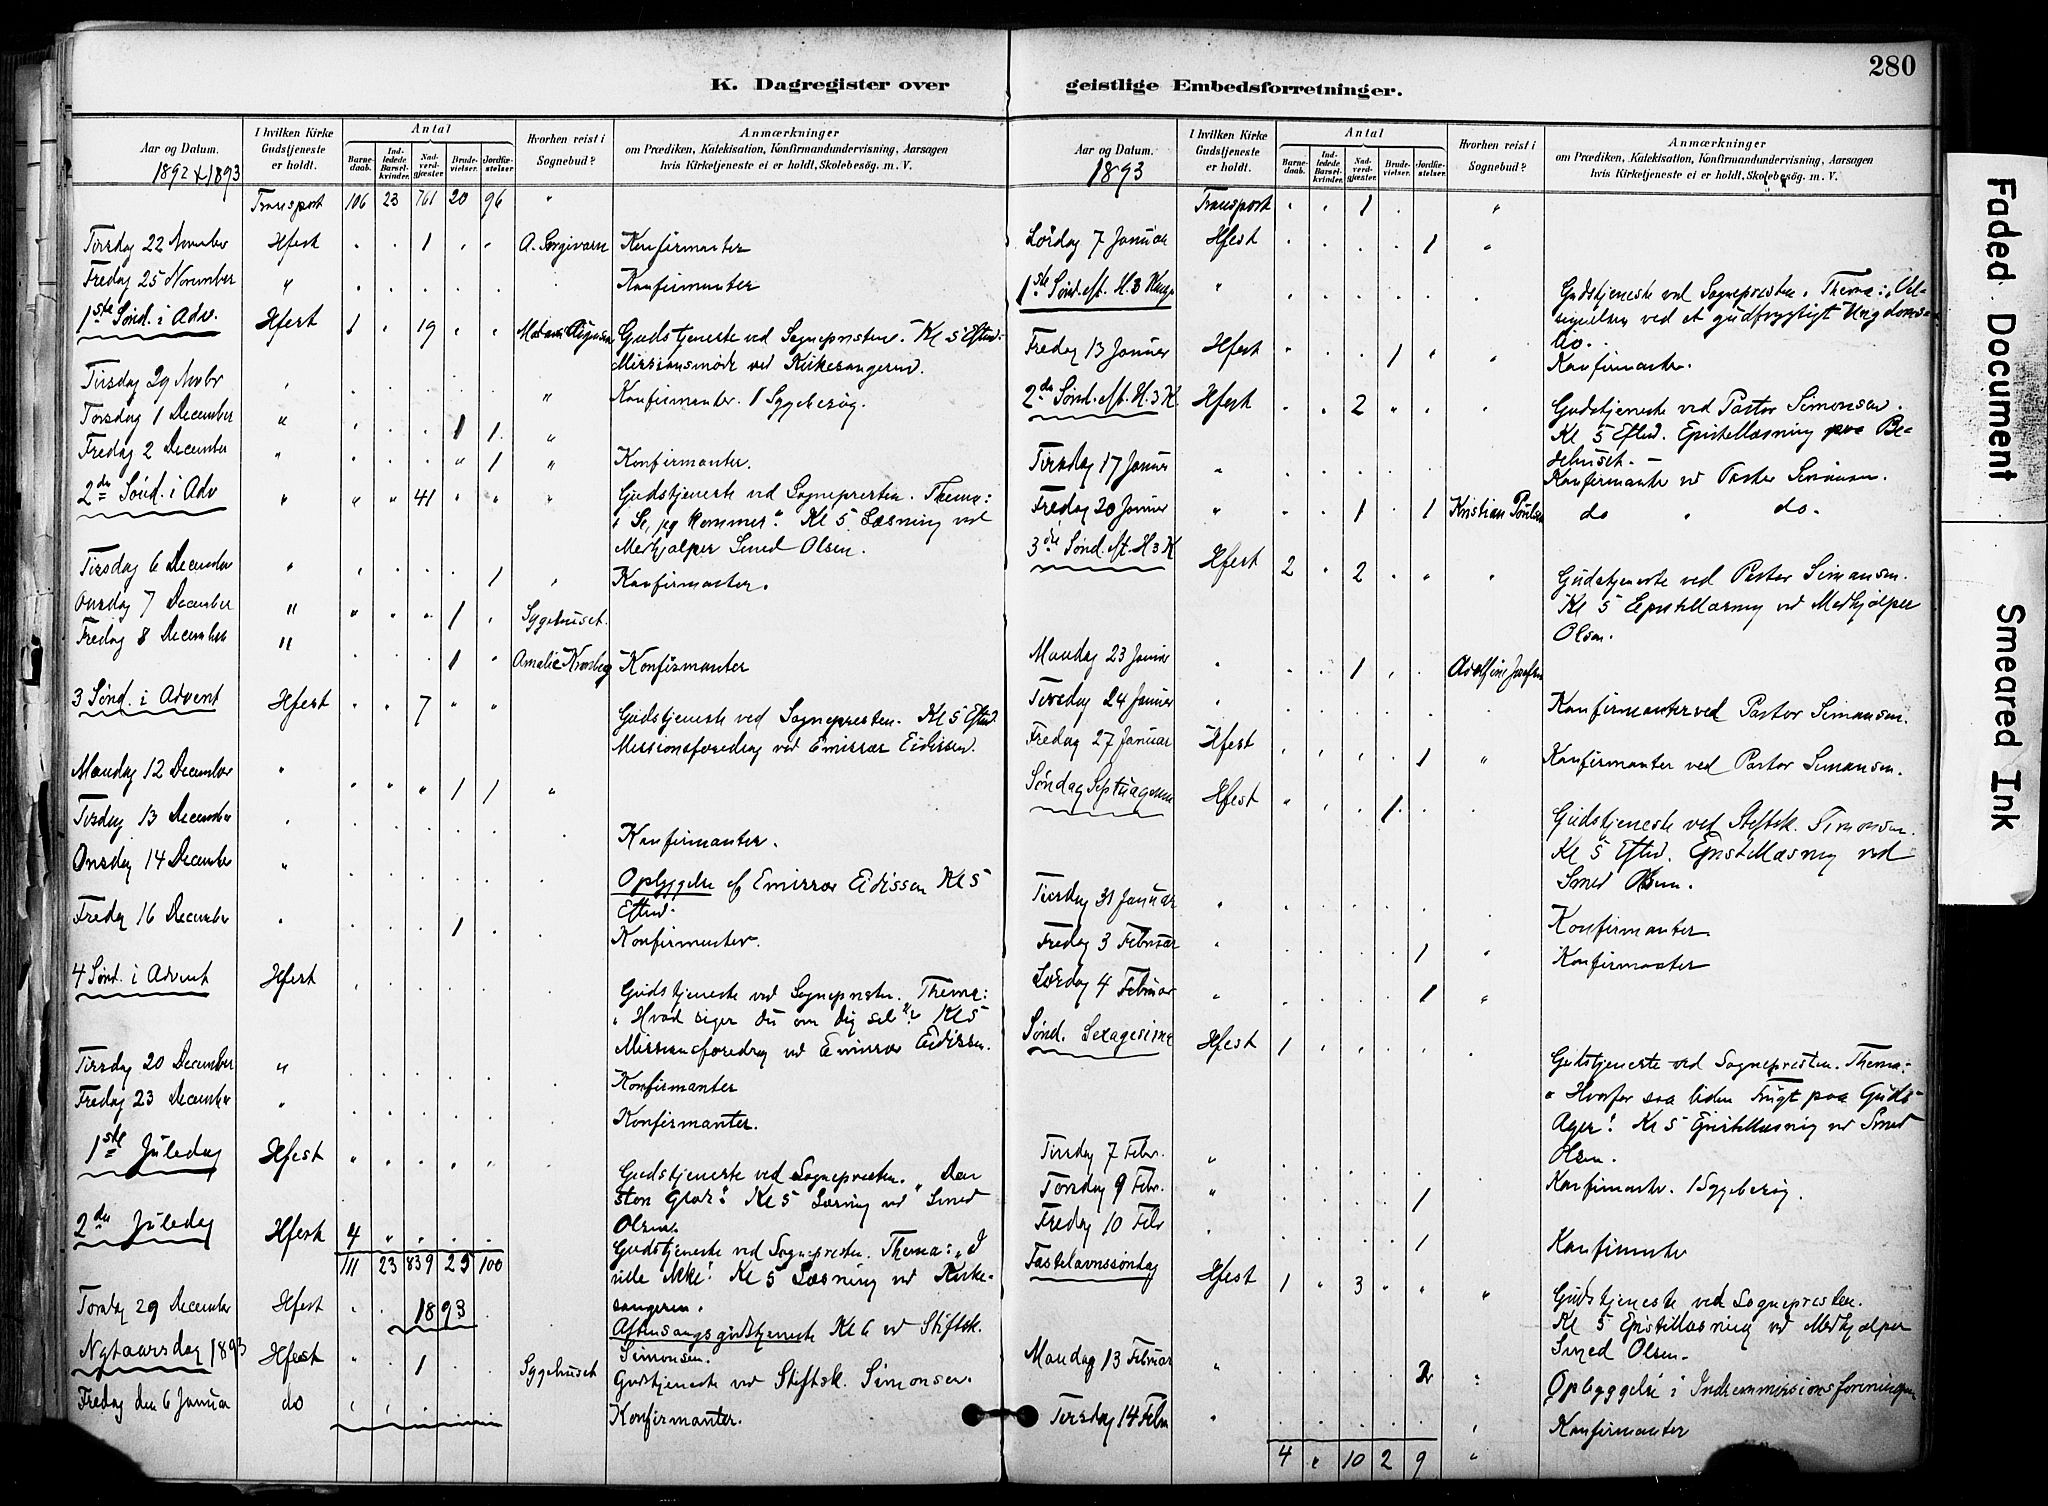 280
K. Dagregister over geistlige Embedsforretninger.
Aar og Datum.
1892 + 1893
I hvilken Kirke Gudstjeneste er holdt.
Antal
Barnedaab.
Indledede Barselkvinder.
Nadverdgjester
Brudevielser.
Jordfæstelser.
Hvorhen reist i Sognebud?
Anmærkninger
om Prædiken, Katekisation, Konfirmandundervisning, Aarsagen
hvis Kirketjeneste ei er holdt, Skolebesøg. m. V.
Transport 106 23 761 20 96 "
Tirsdag 22 November Hfest . . 1 . . Konfirmanter
Fredag 25 November " . . . . . Konfirmanter
1ste Sønd. i Adv. Hfest 1 . 19 . . Gudstjeneste ved Sognepresten. Kl 5 Efterd:
Missionsmøde ved Kirkesangeren.
Tirsdag 29 Novbr . . . . . . " Konfirmanter. 1 Sygebesøg.
Torsdag 1 December " . . . 1 1. "
Fredag 2 December " . . . " 1 " Konfirmanter.
2den Sønd. i Adv " " " 41 " " " Gudstjeneste ved Sognepresten. Thema:
"Se, jeg kommer". Kl 5 Læsning ved
Medhjælper Smed Olsen.
Tirsdag 6 December " . . . . 1 . Konfirmanter.
Onsdag 7 December " " . . 1 . Sygehuset.
Fredag 8 December " . . . 1 " Amalie Konfirmanter
3 Sønd. i Advent Hfest " " 7 " " Gudstjeneste ved Sognepresten. Kl 5 Efterd.
Missionsforedrag ved Emissær Eidissen.
Mandag 12 December " " " " 1 1 "
Tirsdag 13 December . . . . . . . Konfirmanter.
Onsdag 14 December " . . . . . . Opbyggelse af Emissær Eidissen Kl 5
Efterd.
Fredag 16 December . . . . 1 . . Konfirmanter.
4 Sønd. i Advent Hfest . . . . . . Gudstjeneste ved Sognepresten. Thema:
"Hvad siger du om dig selv"? Kl 5
Missionsforedrag ved Emissær Eidissen.
Tirsdag 20 December " . . . . . . Konfirmanter
Fredag 23 December " . . . . . . Konfirmanter.
1ste Juledag Hfest " . . . . Gudstjeneste ved Sognepresten. "Den
Kl 5 Læsning ved Smed
Olsen.
2den Juledag Hfest 4 " . . . Gudstjeneste ved Sognepresten. Thema: "I
vilde ikke! Kl 5 Læsning ved Kirke-
sangeren.
111 23 839 25 100
1893
Torsdag 29 December Hfest . . . . Aftensangsgudstjeneste Kl 6 ved Stiftsk.
Simonsen.
Nytaarsdag 1893 Hfest " . 1 . . Sygehuset Gudstjeneste ved Stiftsk. Simonsen.
Fredag den 6 Januar do . . . . . Konfirmanter.
Aar og Datum.
1893
I hvilken Kirke Gudstjeneste er holdt.
Antal
Barnedaab.
Indledede Barselkvinder.
Nadverdgjester.
Brudevielser.
Jordfæstelser.
Hvorhen reist i Sognebud?
Anmærkninger
om Prædiken, Katekisation, Konfirmandundervisning, Aarsagen
hvis Kirketjeneste ei er holdt, Skolebesøg. m. V.
Transport . . 1 . "
Lørdag 7 Januar Hfest . . . . 1 "
1ste Sønd. eft. H. 3 Kong. " . . . . . . Gudstjeneste ved Sognepresten. Thema: "Vel-
signelsen ved et gudfrygtigt Ungdoms-
liv.
Fredag 13 Januar Hfest " . . 1 " " Konfirmanter.
2den Sønd. eft. H. 3 K. Hfest . . 2 " . . Gudstjeneste ved Pastor Simonsen.
Kl 5 Efterd. Epistellæsning paa Be-
dehuset.
Tirsdag 17 Januar " . . . . . . Konfirmanter ved Pastor Simonsen.
Fredag 20 Januar " . . 1 . 1 Kristian Poulsen do " do.
3die Sønd. eft. H 3 K Hfest 2 . 2 . " " Gudstjeneste ved Pastor Simonsen.
Kl 5 Epistellæsning ved Medhjælper
Olsen.
Mandag 23 Januar . . . 1 . . Adolfine Josefsen
Tirsdag 24 Januar . . . . . . . Konfirmanter ved Pastor Simonsen.
Fredag 27 Januar Hfest . . . . 1 " Konfirmanter ved Pastor Simonsen.
Søndag Septuagesima Hfest " . . 1. . . Gudstjeneste ved Stiftsk. Simonsen.
Kl 5 Efterd. Epistellæsning ved
Smed Olsen.
Tirsdag 31 Januar " . . . . . . Konfirmanter
Fredag 3 Februar " . . . . 1 . Konfirmanter
Lørdag 4 Februar " . . . . 1 "
Sønd. Sexagesima Hfest 1 . . . . . Gudstjeneste ved Sognepresten. Thema:
"Hvorfor saa liden Frugt paa Guds
Ager! Kl 5 Epistellæsning ved Smed
Olsen.
Tirsdag 7 Febr. " . . . . . . Konfirmanter. 1 Sygebesøg.
Torsdag 9 Febr. " . . . . 1
Fredag 10 Febr . . . . . 1 Konfirmanter
Fastelavnssøndag Hfest 1 " 3 . . " Gudstjeneste ved Sognepresten.
Kl 5 Epistellæsning ved Medhjælper
Smed Olsen.
Mandag 13 Februar " . . . . 2 " Opbyggelse i Indremissionsforeningen
Tirsdag 14 Febr " . . . . . . Konfirmanter
4 " 10 2 9 "
Faded Document
Smeared Ink